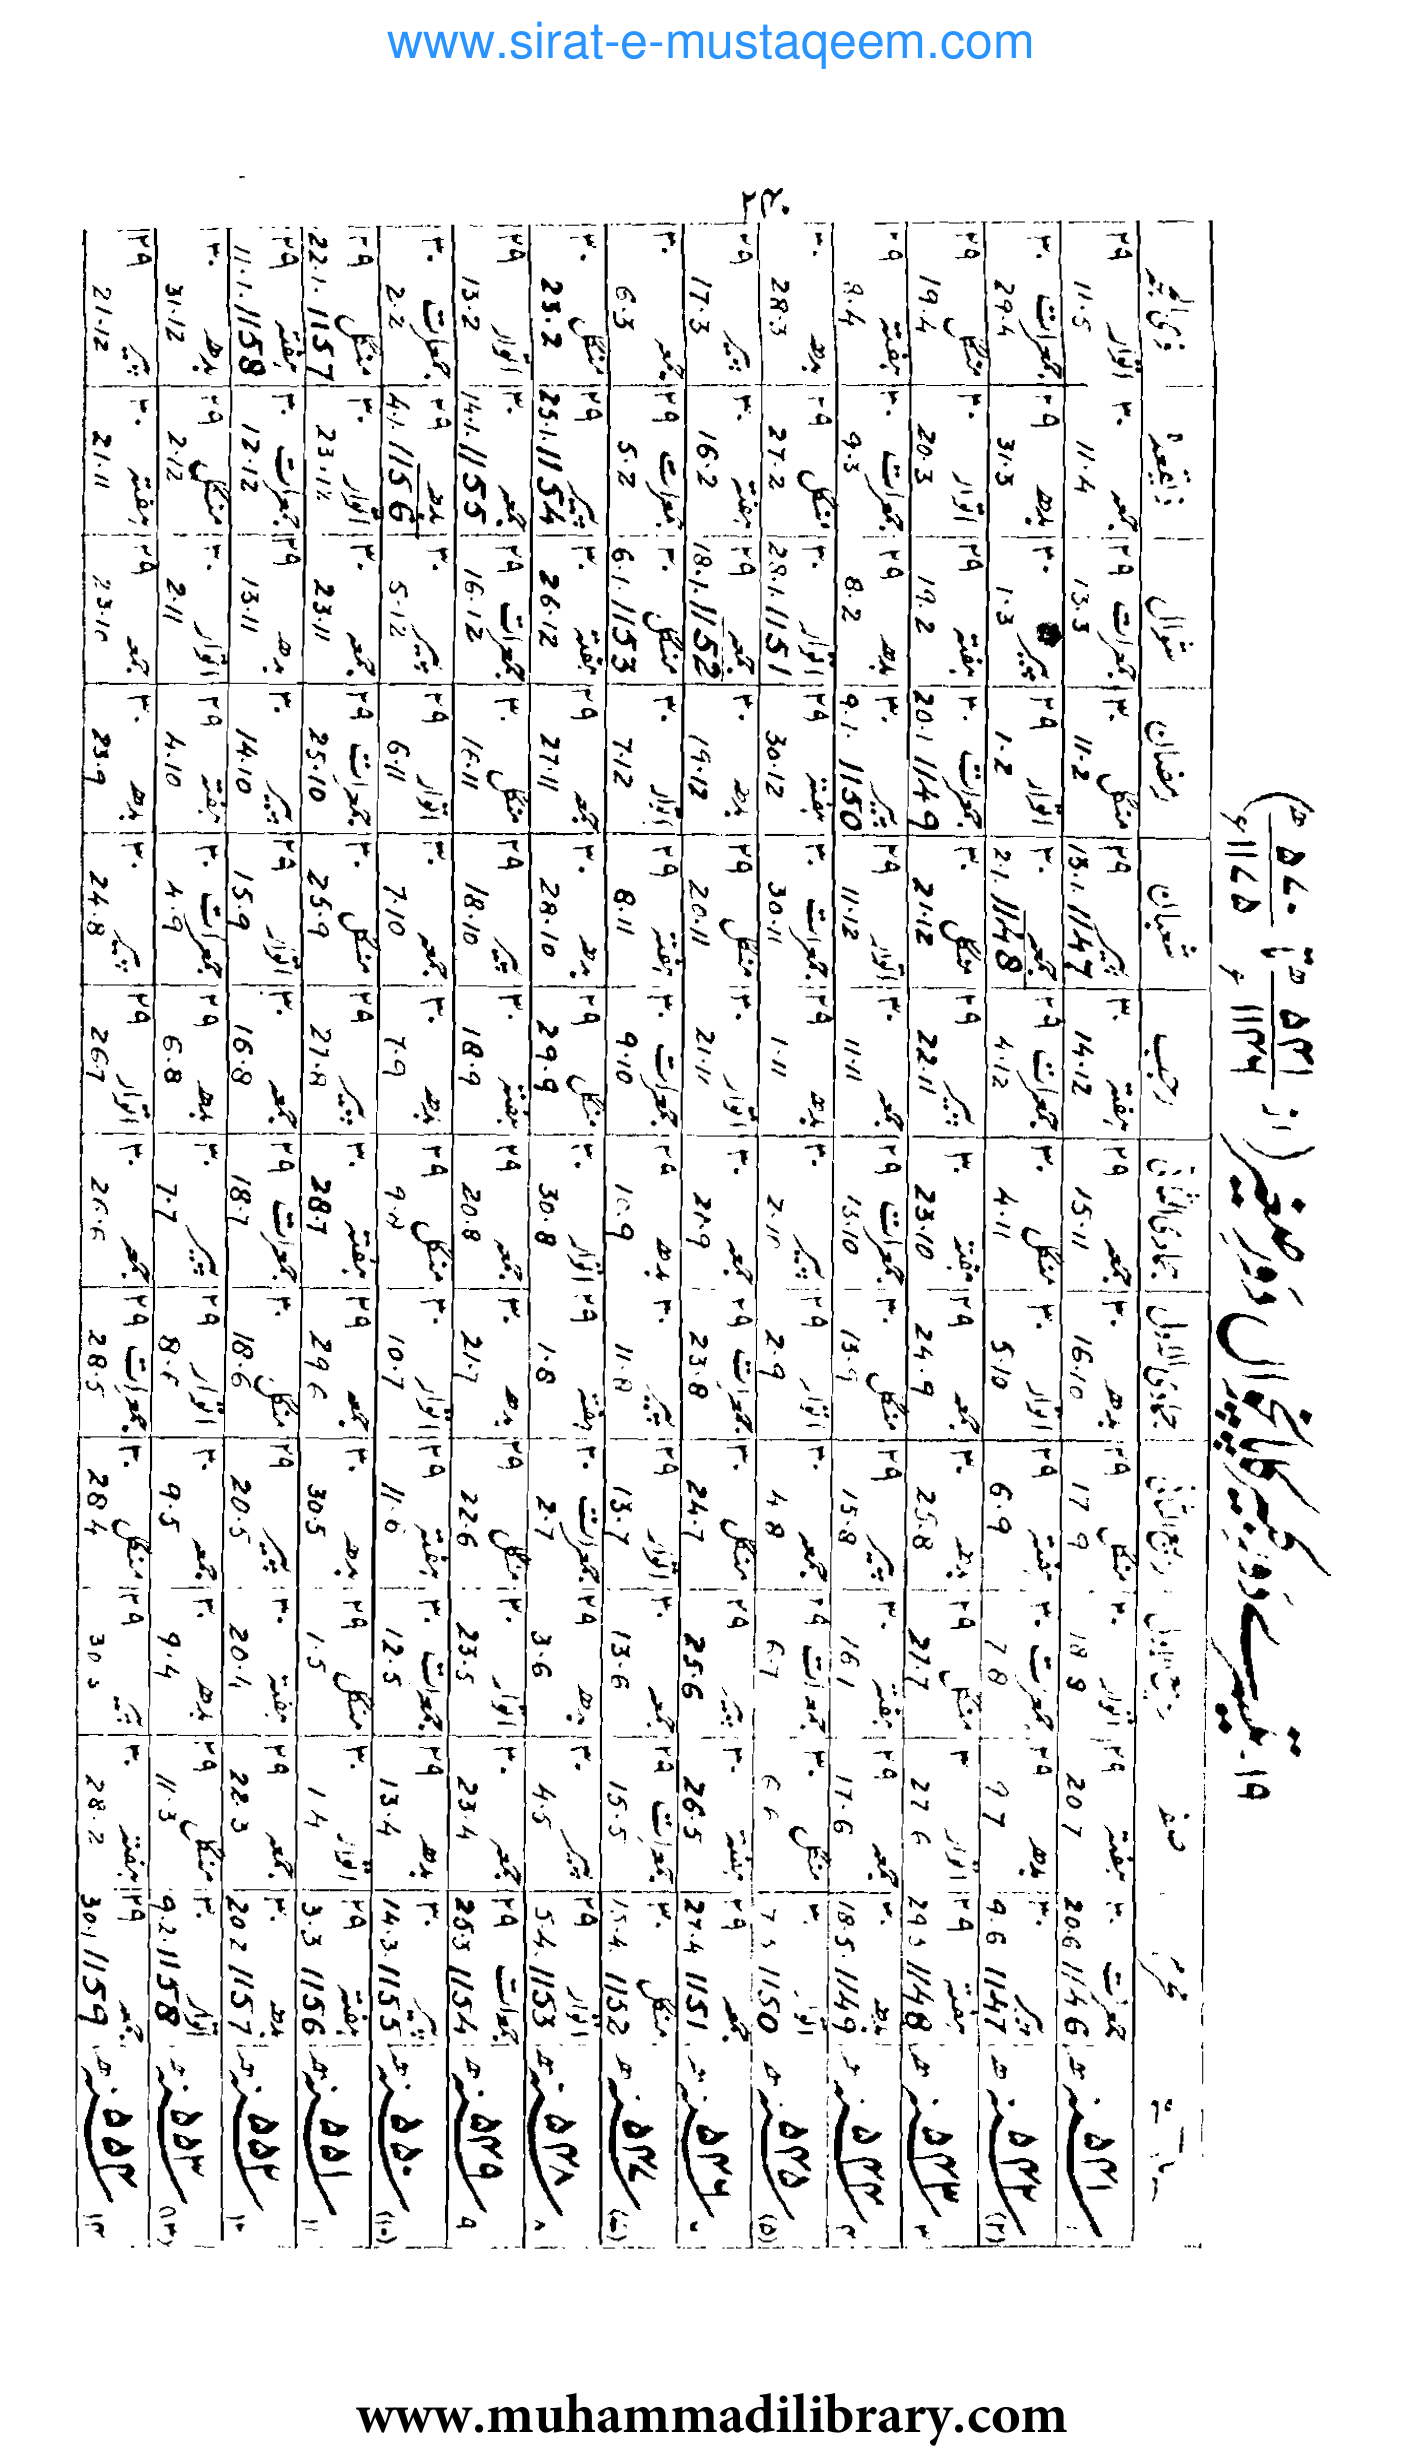 www.sirat-e-mustaqeem.com
۱۹۔ تیسرے دَورِ کبیر کا پانچواں دَورِ صغیر (از ۵۴۱ھ تا ۵۷۰ھ)
۱۱۴۶ء ۱۱۷۵ء
محرم صفر ربیع الاول ربیع الثانی جمادی الاول جمادی الثانی رجب شعبان رمضان شوال ذیقعدہ
سنہ ۵۴۱ھ جمعرات ۳۰ 20.6 1146 ہفتہ ۲۹ 20 7 اتوار ۳۰ منگل ۲۹ 17 9 بدھ ۳۰ 16.10 جمعہ ۲۹ 15.11 ہفتہ ۳۰ 14.12 پیر ۲۹ 13.1.1147 منگل ۳۰ 11.2 جمعرات ۲۹ 13.3 جمعہ ۳۰ 11.4 اتوار ۲۹ 11.5
(۲) سنہ ۵۴۲ھ پیر ۳۰ 9.6 1147 بدھ ۲۹ 9 7 جمعرات ۳۰ 7 8 ہفتہ ۲۹ 6.9 اتوار ۳۰ 5.10 منگل ۳۰ 4.11 جمعرات ۲۹ 4.12 جمعہ ۳۰ 2.1.1148 اتوار ۲۹ 1.2 پیر ۳۰ 1.3 بدھ ۲۹ 31.3 جمعرات ۳۰ 29.4
۳ سنہ ۵۴۳ھ ہفتہ ۲۹ 1148 اتوار ۳۰ 27 6 منگل ۲۹ 27.7 بدھ ۳۰ 25.8 جمعہ ۲۹ 24.9 ہفتہ ۳۰ 23.10 پیر ۲۹ 22.11 منگل ۳۰ 21.12 جمعرات ۳۰ 20.1 1149 ہفتہ ۲۹ 19.2 اتوار ۳۰ 20.3 منگل ۲۹ 19.4
سنہ ۵۴۴ھ بدھ ۳۰ 18.5.1149 جمعہ ۲۹ 17.6 ہفتہ ۳۰ پیر ۲۹ 15.8 منگل ۳۰ 13.9 جمعرات ۲۹ 13.10 جمعہ ۳۰ 11.11 اتوار ۲۹ 11.12 پیر ۳۰ 9.1.1150 بدھ ۲۹ 8.2 جمعرات ۳۰ 9.3 ہفتہ ۲۹ 8.4
(۵) سنہ ۵۴۵ھ اتوار ۳۰ 1150 منگل ۳۰ 6 6 جمعرات ۲۹ 6.7 جمعہ ۳۰ 4 8 اتوار ۲۹ 2.9 پیر ۳۰ بدھ ۲۹ 1.11 جمعرات ۳۰ 30.11 ہفتہ ۲۹ 30.12 اتوار ۳۰ 28.1.1151 منگل ۲۹ 27.2 بدھ ۳۰ 28.3
سنہ ۵۴۶ھ جمعہ ۲۹ 27.4 1151 ہفتہ ۳۰ 26.5 پیر ۲۹ 25.6 منگل ۳۰ 24.7 جمعرات ۲۹ 23.8 جمعہ ۳۰ 21.9 اتوار ۳۰ 21.11 منگل ۲۹ 20.11 بدھ ۳۰ 19.12 جمعہ ۲۹ 18.1.1152 ہفتہ ۳۰ 16.2 پیر ۲۹ 17.3
سنہ ۵۴۷ھ منگل ۳۰ 15.4 1152 جمعرات ۲۹ 15.5 جمعہ ۳۰ 13.6 اتوار ۲۹ 13.7 پیر ۳۰ 11.8 بدھ ۲۹ 10.9 جمعرات ۳۰ 9.10 ہفتہ ۲۹ 8.11 اتوار ۳۰ 7.12 منگل ۳۰ 6.1.1153 جمعرات ۲۹ 5.2 جمعہ ۳۰ 6.3
۸ سنہ ۵۴۸ھ اتوار ۲۹ 5.4.1153 پیر ۳۰ 4.5 بدھ ۲۹ 3.6 جمعرات ۳۰ 2.7 ہفتہ ۲۹ 1.8 اتوار ۳۰ 30.8 منگل ۳۰ 29.9 بدھ ۳۰ 28.10 جمعہ ۲۹ 27.11 ہفتہ ۳۰ 26.12 پیر ۲۹ 25.1.1154 منگل ۳۰ 23.2
۹ سنہ ۵۴۹ھ جمعرات ۲۹ 25.3 1154 جمعہ ۳۰ 23.4 اتوار ۳۰ 23.5 منگل ۲۹ 22 6 بدھ ۳۰ 21.7 جمعہ ۲۹ 20.8 ہفتہ ۳۰ 18.9 پیر ۲۹ 18.10 منگل ۳۰ 16.11 جمعرات ۲۹ 16.12 جمعہ ۳۰ 14.1.1155 اتوار ۲۹ 13.2
(۱۰) سنہ ۵۵۰ھ پیر ۳۰ 14.3.1155 بدھ ۲۹ 13.4 جمعرات ۳۰ 12.5 ہفتہ ۲۹ 11.6 اتوار ۳۰ 10.7 منگل ۲۹ بدھ ۳۰ 7.9 جمعہ ۳۰ 7.10 اتوار ۲۹ 6.11 پیر ۳۰ 5.12 بدھ ۲۹ 4.1.1156 جمعرات ۳۰ 2.2
۱۱ سنہ ۵۵۱ھ ہفتہ ۲۹ 3.3 1156 اتوار ۳۰ 1 4 منگل ۲۹ 1.5 بدھ ۳۰ 30.5 جمعہ ۲۹ 29 6 ہفتہ ۳۰ 28.7 پیر ۲۹ 27.8 منگل ۳۰ 25.9 جمعرات ۲۹ 25.10 جمعہ ۳۰ 23.11 اتوار ۳۰ 23.12 منگل ۲۹ 22.1.1157
سنہ ۵۵۲ھ بدھ ۳۰ 20 2 1157 جمعہ ۲۹ 22.3 ہفتہ ۳۰ 20.4 پیر ۲۹ 20.5 منگل ۳۰ 18.6 جمعرات ۲۹ 18.7 جمعہ ۳۰ 16.8 اتوار ۲۹ 15.9 پیر ۳۰ 14.10 بدھ ۲۹ 13.11 جمعرات ۳۰ 12.12 ہفتہ ۲۹ 11.1.1158
سنہ ۵۵۳ھ اتوار ۳۰ 9.2.1158 منگل ۲۹ 11.3 بدھ ۳۰ 9.4 جمعہ ۳۰ 9.5 اتوار ۲۹ 8.6 پیر ۳۰ 7.7 بدھ ۲۹ 6.8 جمعرات ۳۰ 4.9 ہفتہ ۲۹ 4.10 اتوار ۳۰ 2.11 منگل ۲۹ 2.12 بدھ ۳۰ 31.12
سنہ ۵۵۴ھ جمعہ ۲۹ 30.1 1159 ہفتہ ۳۰ 28.2 پیر ۲۹ منگل ۳۰ 28 4 جمعرات ۲۹ 28.5 جمعہ ۳۰ 26.6 اتوار ۲۹ 26.7 پیر ۳۰ 24.8 بدھ ۳۰ 23.9 جمعہ ۲۹ 23.10 ہفتہ ۳۰ 21.11 پیر ۲۹ 21.12
www.muhammadilibrary.com